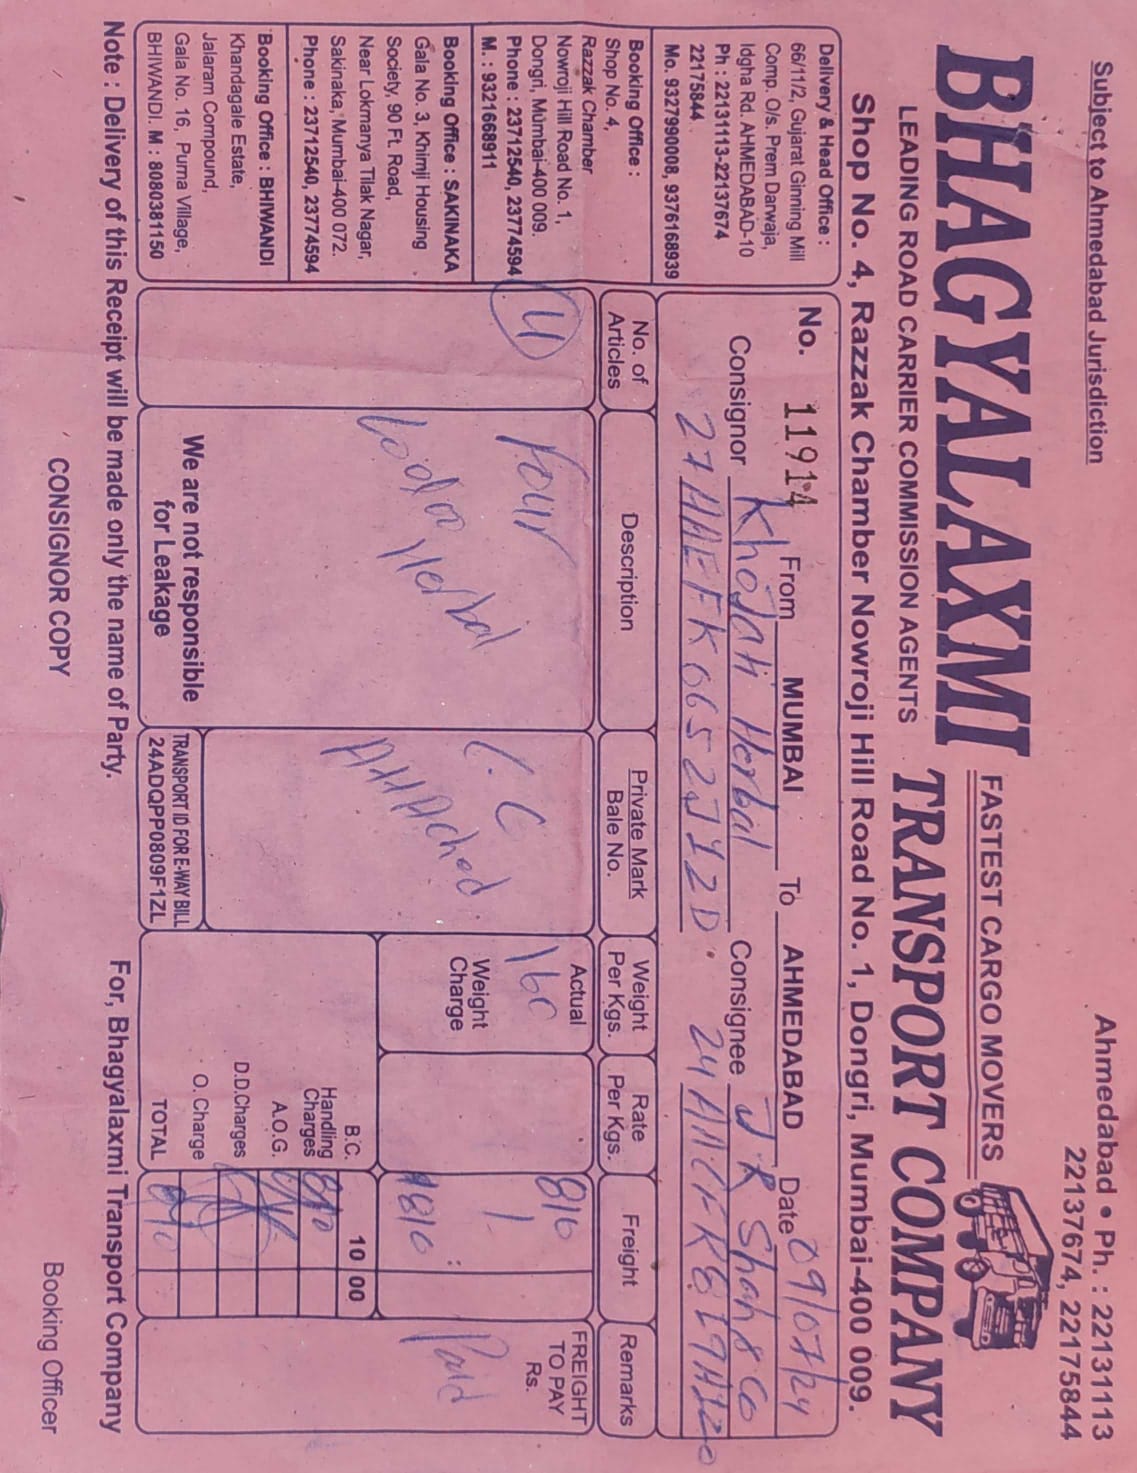 Subject to Ahmedabad Jurisdiction
Ahmedabad • Ph. : 22131113
22137674, 22175844
BHAGYALAXMI
FASTEST CARGO MOVERS
TRANSPORT COMPANY
LEADING ROAD CARRIER COMMISSION AGENTS
Shop No. 4, Razzak Chamber Nowroji Hill Road No. 1, Dongri, Mumbai-400 009.
Delivery & Head Office :
66/11/2, Gujarat Ginning Mill
Comp. O/s. Prem Darwaja,
Idgha Rd. AHMEDABAD-10
Ph : 22131113-22137674
22175844
Mo. 9327990008, 9376168939
Booking Office :
Shop No. 4,
Razzak Chamber
Nowroji Hill Road No. 1,
Dongri, Mumbai-400 009.
Phone : 23712540, 23774594
M. : 9321668911
Booking Office : SAKINAKA
Gala No. 3, Khimji Housing
Society, 90 Ft. Road,
Near Lokmanya Tilak Nagar,
Sakinaka, Mumbai-400 072.
Phone : 23712540, 23774594
Booking Office : BHIWANDI
Khandagale Estate,
Jalaram Compound,
Gala No. 16, Purna Village,
BHIWANDI. M : 8080381150
No. 11914 From MUMBAI To AHMEDABAD Date 09/07/24
Consignor Khojati Herbal Consignee J R Shah & Co
27AAEFK0652J1ZD.
No. of Articles
Description
Private Mark Bale No.
Weight Per Kgs.
Rate Per Kgs.
Freight
Remarks
4
Four
Herbal
Attached
Actual
160
Weight Charge
810
FREIGHT TO PAY Rs.
Paid
B.C. 10 00
Handling Charges
A.O.G.
D.D.Charges
O. Charge
TOTAL
We are not responsible
for Leakage
TRANSPORT ID FOR E-WAY BILL
24ADQPP0809F1ZL
Note : Delivery of this Receipt will be made only the name of Party.
For, Bhagyalaxmi Transport Company
CONSIGNOR COPY
Booking Officer